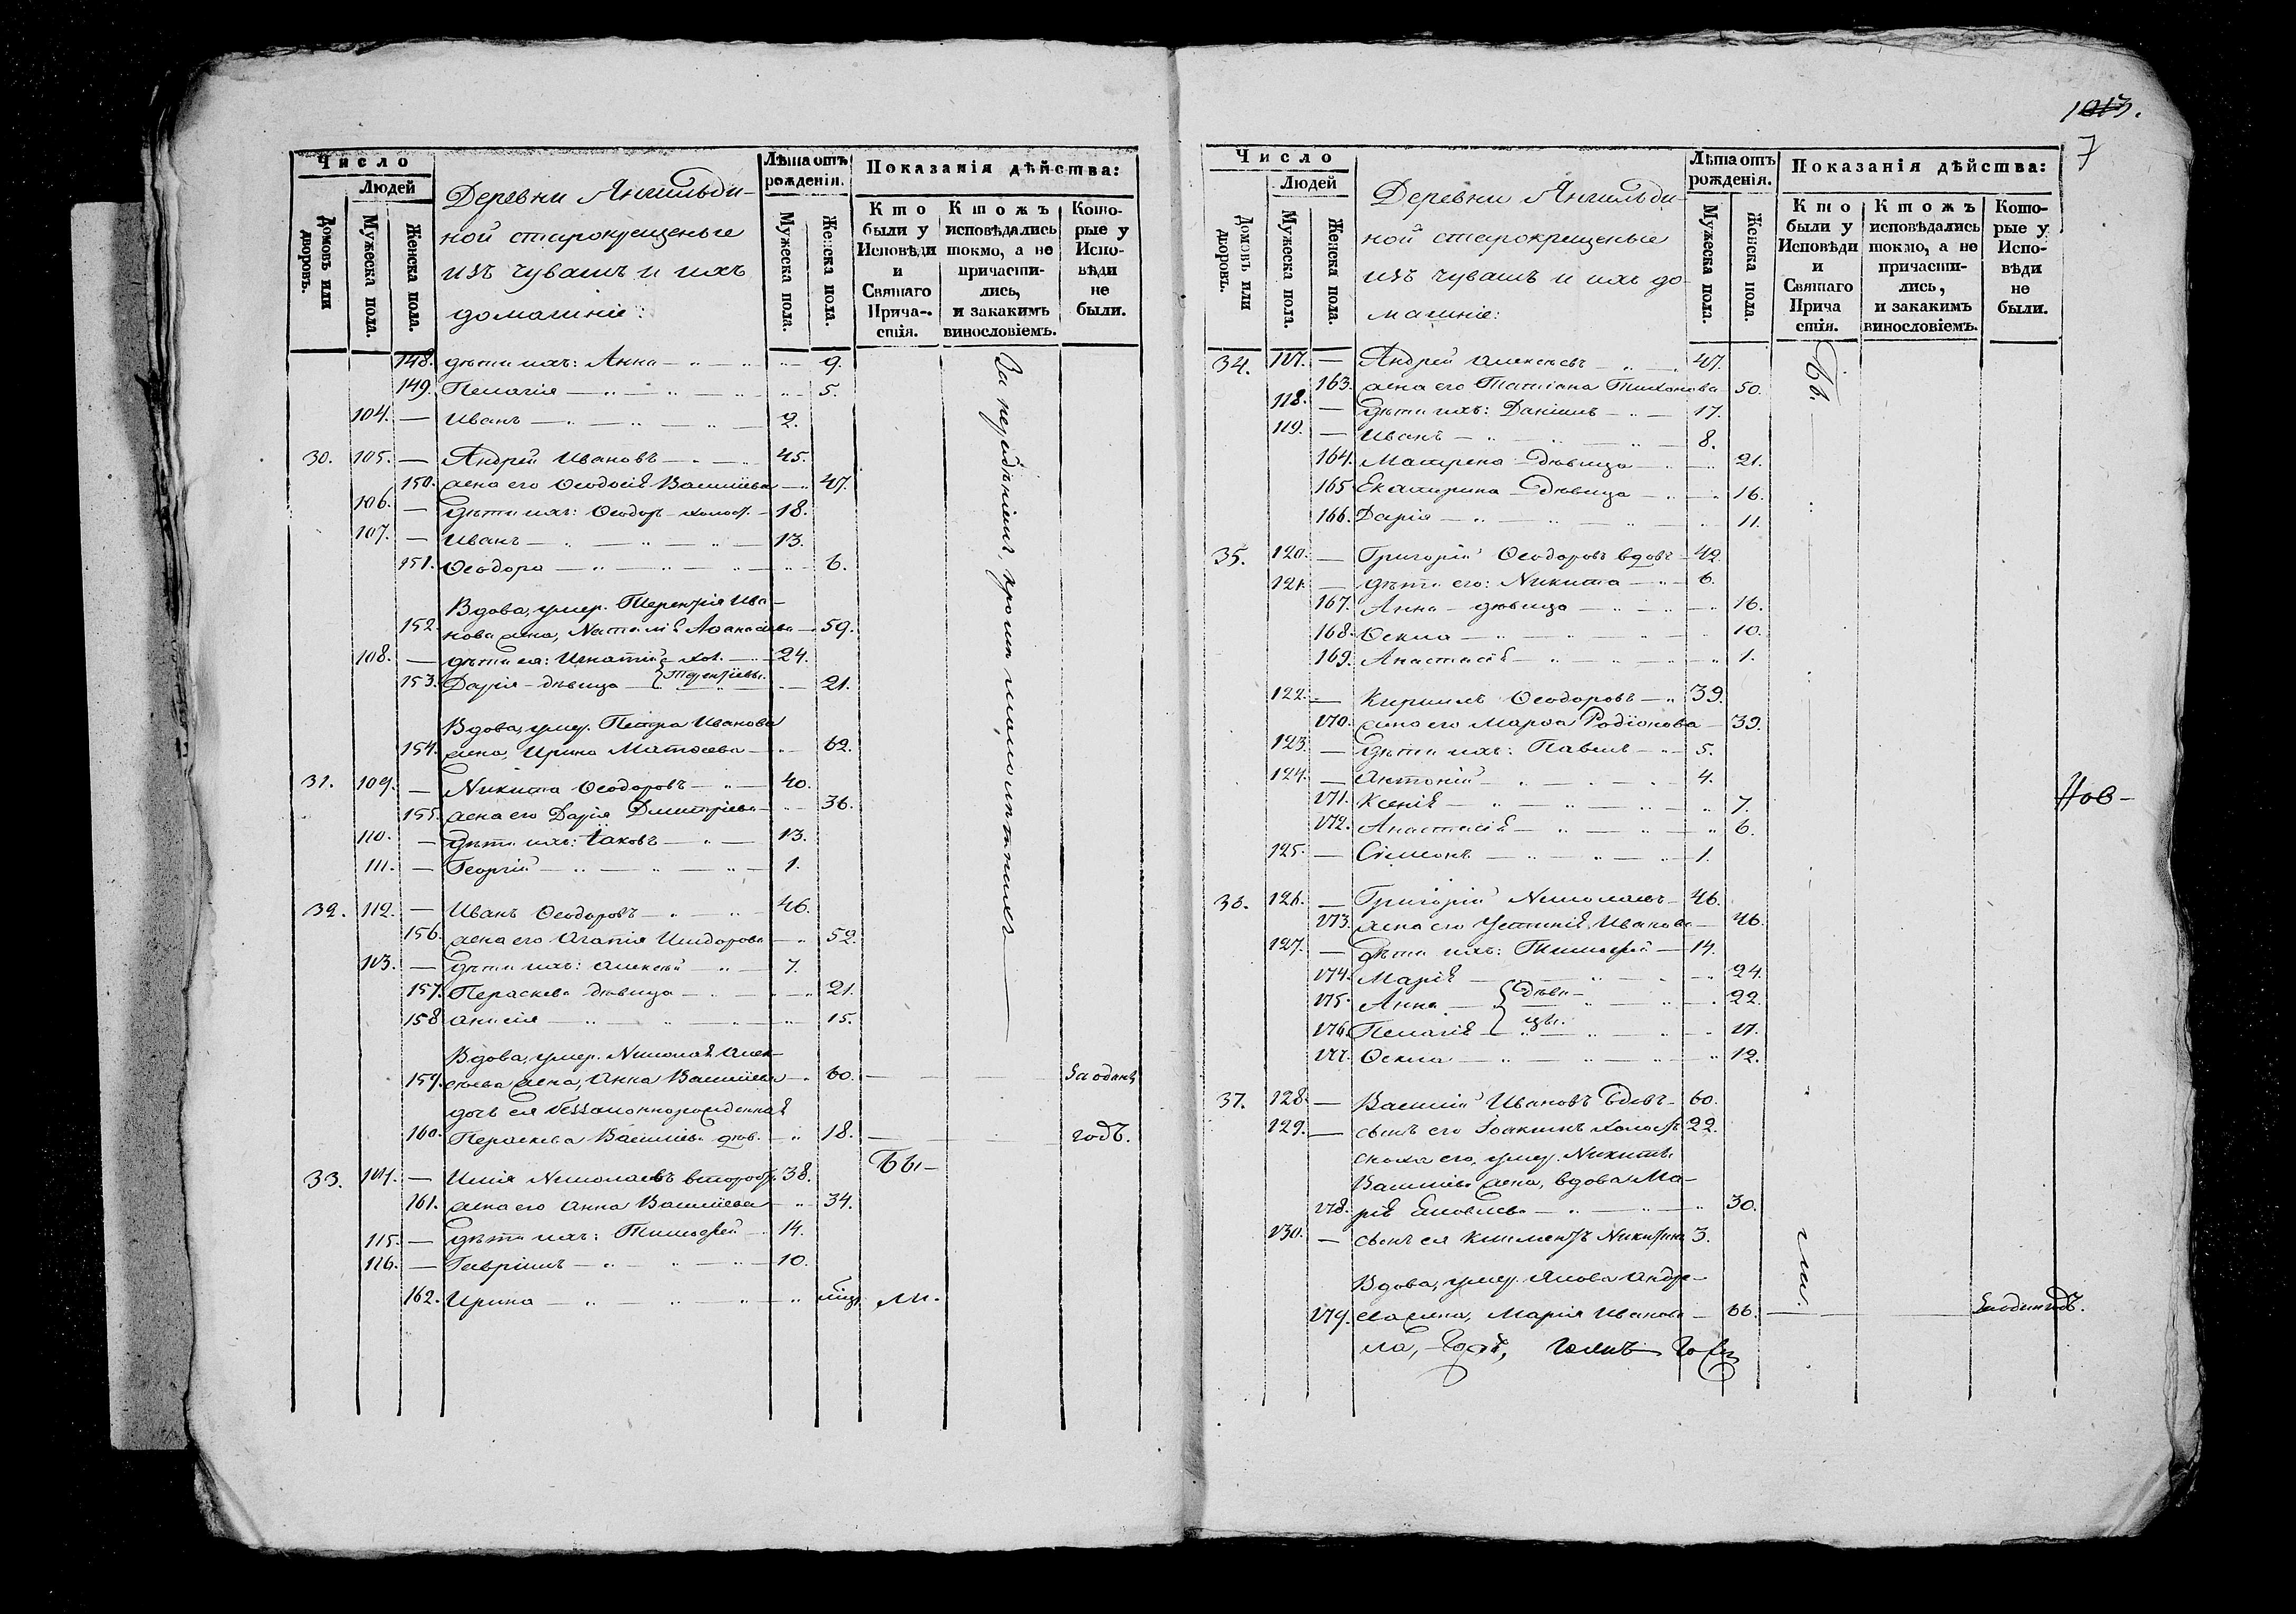 Число
Людей
Домовъ или дворовъ.
Мужеска пола.
Женска пола.
Деревни Янгильди-
ной старокрещеные
изъ чувашъ и ихъ
домашніе:
Лѣта отъ рожденія.
Мужеска пола.
Женска пола.
Показанія дѣйства:
Кто были у Исповѣди и Святаго Прича-стія.
Ктожъ исповѣдались токмо, а не причасти-лись, и закакимъ винословіемъ.
Кото-рые у Испо-вѣди не были.
148. дѣти ихъ: Анна 9.
149. Пелагія 5.
104. — Иванъ 2.
30. 105. — Андрей Ивановъ 45.
150. жена его Ѳеодосія Васильева 47.
106. — дѣти ихъ: Ѳеодоръ холост. 18.
107. — Иванъ 13.
151. Ѳеодора 6.
Вдова, умер. Терентія Ива-
152. нова жена, Наталія Аѳанасьева 59.
108. — дѣти ея: Игнатій хол. 24.
153. Дарія дѣвица Терентьевы. 21.
Вдова, умер. Петра Иванова
154. жена, Ирина Матѳеева 62.
31. 109. — Никита Ѳеодоровъ 40.
155. жена его Дарія Дмитріева 36.
110. — дѣти ихъ: Іаковъ 13.
111. — Георгій 1.
32. 112. — Иванъ Ѳеодоровъ 46.
156. жена его Агапія Исидорова 52.
113. — дѣти ихъ: Алексѣй 7.
157. Параскева дѣвица 21.
158. Анисія 15.
Вдова, умер. Николая Алек-
159. сѣева жена, Анна Васильева 60. За одинъ
дочь ея незаконнорожденная
160. Параскева Васильева дѣв. 18. годъ.
Бы-
33. 114. — Илія Николаевъ второбр. 38.
161. жена его Анна Васильева 34.
115. — дѣти ихъ: Тимоѳей 14.
116. — Гавріилъ 10.
162. Ирина ли.
За нерадѣніемъ, кромѣ малолѣтнихъ
1013.
7
Число
Людей
Домовъ или дворовъ.
Мужеска пола.
Женска пола.
Деревни Янгильди-
ной старокрещеные
изъ чувашъ и ихъ до-
машніе:
Лѣта отъ рожденія.
Мужеска пола.
Женска пола.
Показанія дѣйства:
Кто были у Исповѣди и Святаго Прича стія.
Ктожъ исповѣдались токмо, а не причасти-лись, и закакимъ винословіемъ.
Кото-рые у Испо-вѣди не были.
34. 117. — Андрей Алексѣевъ 47.
163. жена его Татіана Тихонова 50.
118. — дѣти ихъ: Даніилъ 17.
119. — Иванъ 8.
164. Матрена дѣвица 21.
165. Екатерина дѣвица 16.
166. Дарія 11.
35. 120. — Григорій Ѳеодоровъ вдовъ 42.
121. — дѣти его: Никита 6.
167. Анна дѣвица 16.
168. Ѳекла 10.
169. Анастасія 1.
122. — Кириллъ Ѳеодоровъ 39.
170. жена его Марѳа Родіонова 39.
123. — дѣти ихъ: Павелъ 5.
124. — Антоній 4.
171. Ксенія 7.
172. Анастасія 6.
125. — Сімеонъ 1.
Нов-
36. 126. — Григорій Николаевъ 46.
173. жена его Устинія Иванова 46.
127. — дѣти ихъ: Тимоѳей 14.
174. Марія 24.
175. Анна дѣви- 22.
176. Пелагія цы. 17.
177. Ѳекла 12.
37. 128. — Василій Ивановъ вдовъ 60.
129. — сынъ его Іоакимъ холостъ 22.
сноха его, умер. Никиты
Васильева жена, вдова Ма-
178. рія Яковлева 30.
130. — сынъ ея Климентъ Никитинъ 3.
Вдова, умер. Якова Андре-
179. ева жена, Марія Иванова 66. За одинъ годъ.
Бы.
ли.